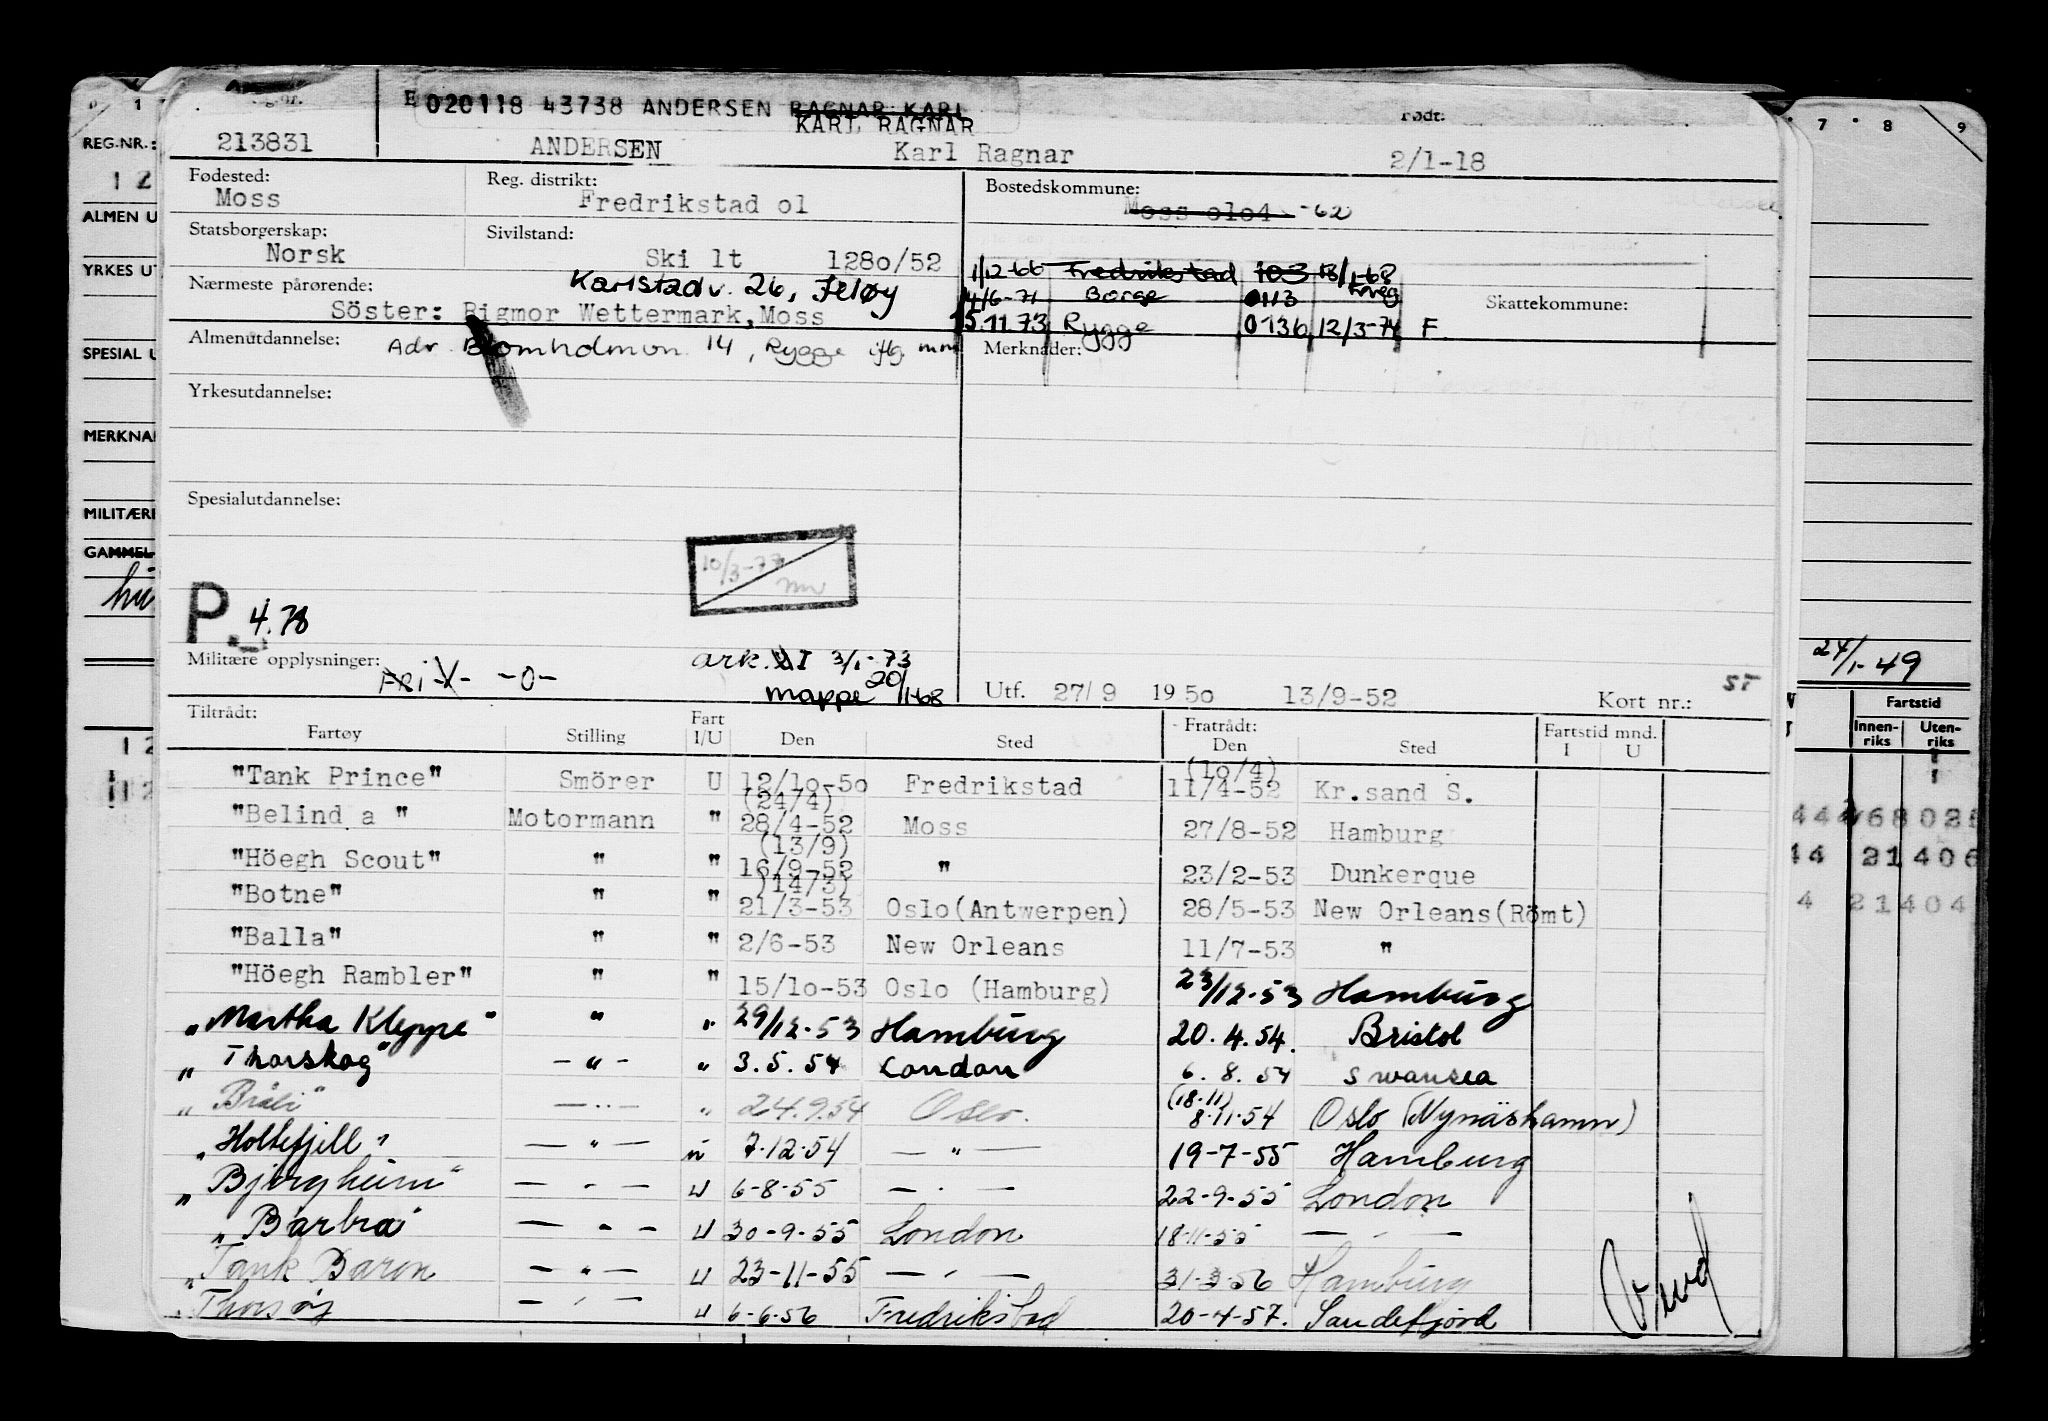 E 020118 43738 ANDERSEN RAGNAR KARL
KARL RAGNAR
Født:
213831 ANDERSEN Karl Ragnar 2/1-18
Fødested: Moss
Reg. distrikt: Fredrikstad o1
Bostedskommune: Moss o1o4 -62
Statsborgerskap: Norsk
Sivilstand: Ski lt 128o/52
1/12-66 Fredrikstad 103 18/1-68
Nærmeste pårørende: Karlstadv. 26, Jeløy
4/6-71 Borge 0113
Skattekommune:
Söster: Rigmor Wettermark, Moss
15.11.73 Rygge 0136 12/3-74 F.
Almenutdannelse: Adr. Blomholmvn. 14, Rygge iflg. mm
Merknader:
Yrkesutdannelse:
Spesialutdannelse:
10/3-77
P. 4.78
Militære opplysninger: FRI -V- -0-
ark. I 3/1-73
mappe 20/1-68
Utf. 27/9 1950 13/9-52 Kort nr.: 5T
Tiltrådt: Fart Fratrådt: Fartstid mnd.
Fartøy Stilling I/U Den Sted Den Sted I U
"Tank Prince" Smörer U 12/1o-5o Fredrikstad (1o/4) 11/4-52 Kr.sand S.
"Belind a " Motormann " (24/4) 28/4-52 Moss 27/8-52 Hamburg
"Höegh Scout" " " (13/9) 16/9-52 " 23/2-53 Dunkerque
"Botne" " " (14/3) 21/3-53 Oslo(Antwerpen) 28/5-53 New Orleans(Römt)
"Balla" " " 2/6-53 New Orleans 11/7-53 "
"Höegh Rambler" " " 15/1o-53 Oslo (Hamburg) 23/12-53 Hamburg
"Martha Kleppe" " " 29/12-53 Hamburg 20.4.54. Bristol
"Thorskog" -"- " 3.5.54 London 6.8.54 Swansea
"Bråli" -"- " 24.9.54 Oslo. (18.11) 8.11.54 Oslo (Nynäshamn)
"Holtefjell" -"- " 7.12.54 -"- 19-7-55 Hamburg
"Bjørgheim" -"- U 6-8-55 -"- 22-9-55 London
"Barbra" -"- U 30-9-55 London 18-11-55 -"-
"Tank Baron -"- U 23-11-55 -"- 31-3-56 Hamburg
"Thorsøy -"- U 6-6-56 Fredrikstad 20-4-57. Sandefjord
REG.-NR.:
12
ALMEN U
YRKES UT
SPESIAL U
MERKNA
MILITÆR
GAMMEL
7 8 9
24/1-49
Fartstid
Innen-riks Uten-riks